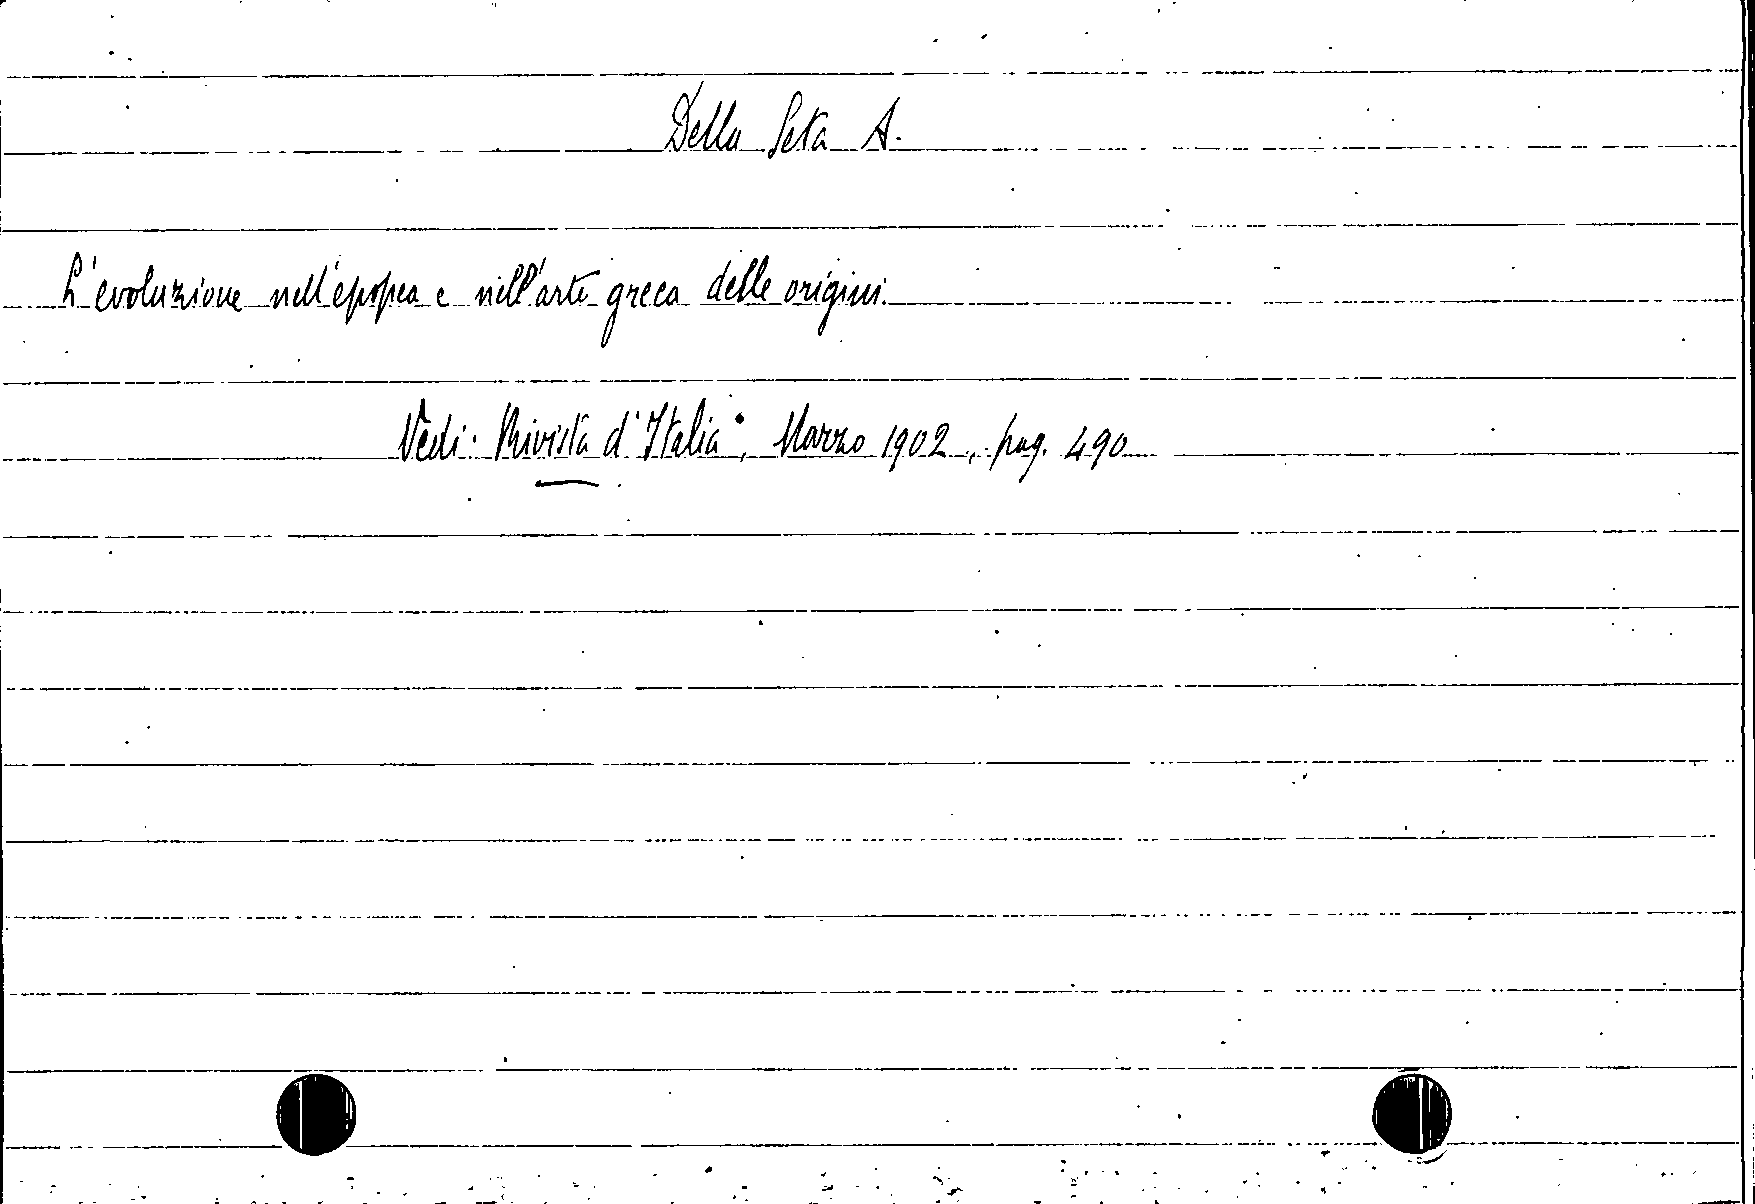 Della Seta A.
L'evoluzione nell'epopea e nell'arte greca delle origini.
Vedi: Rivista d'Italia", Marzo 1902, pag. 490